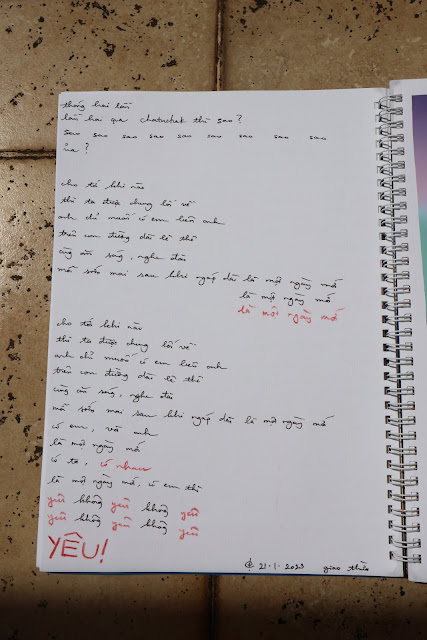 tháng hai lần
lần hai qua chatuchak thì sao?
sao sao sao sao sao sao sao sao sao
ủa?
cho tới khi nào
thì ta được chung lối về
anh chỉ muốn có em bên anh
trên con đường dài lê thê
cùng ăn sáng, nghe đàn
mà sớm mai sau khi ngáp dài là một ngày mới
là một ngày mới
là một ngày mới
cho tới khi nào
thì ta được chung lối về
anh chỉ muốn có em bên anh
trên con đường dài lê thê
cùng ăn sáng, nghe đàn
mà sớm mai sau khi ngáp dài là một ngày mới
có em, với anh
là một ngày mới
có ta, có nhau
là một ngày mới, có em thì
yêu không yêu không yêu
yêu không yêu không yêu
YÊU!
21.1.2023 giao thừa